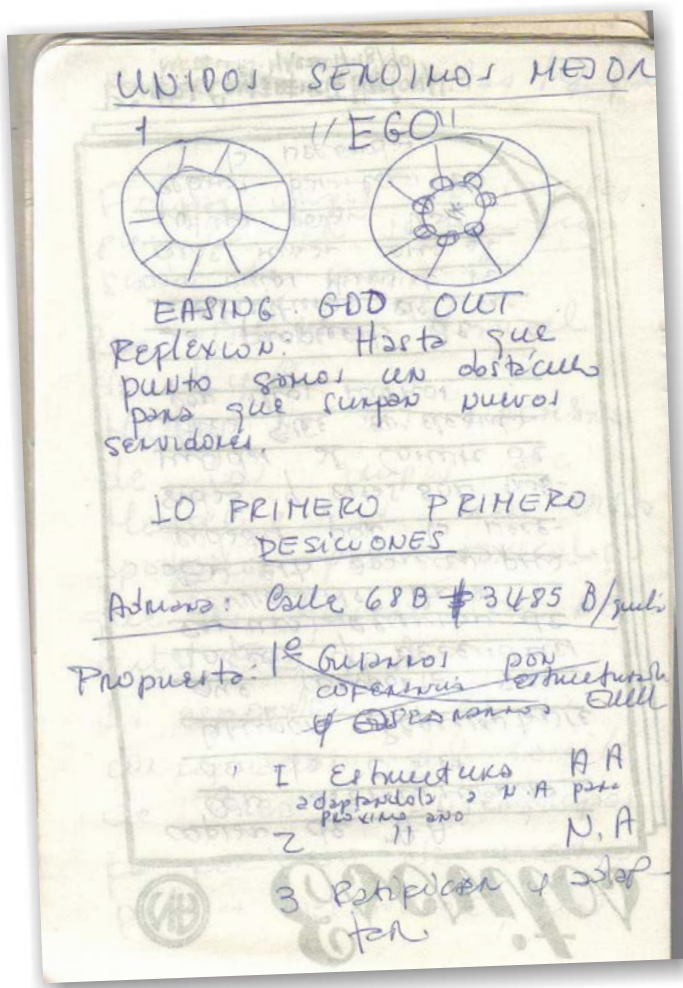 UNIDOS SERVIMOS MEJOR
1 "EGO"
EASING GOD OUT
Reflexion. Hasta que
punto somos un obstáculo
para que surjan nuevos
servidores
LO PRIMERO PRIMERO
DESICIONES
Adriana: Calle 68B # 3485 B/quilla
Propuesta: 1º Guiarnos por
conferencia estructurada
I Estructura AA
adaptandola a N.A para
próximo año
2 " N.A
3 Ratificar y adap
tar